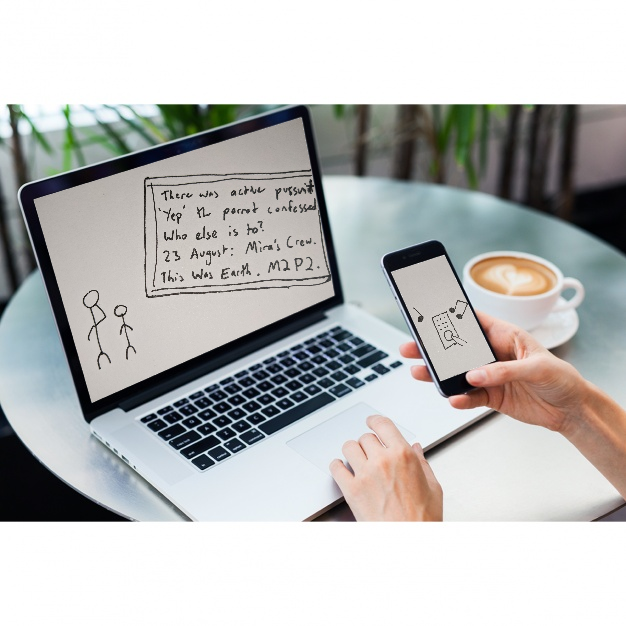 There was active pursuit
'Yep' the parrot confessed
Who else is to?
23 August: Mira's Crew.
This Was Earth. M2P2.